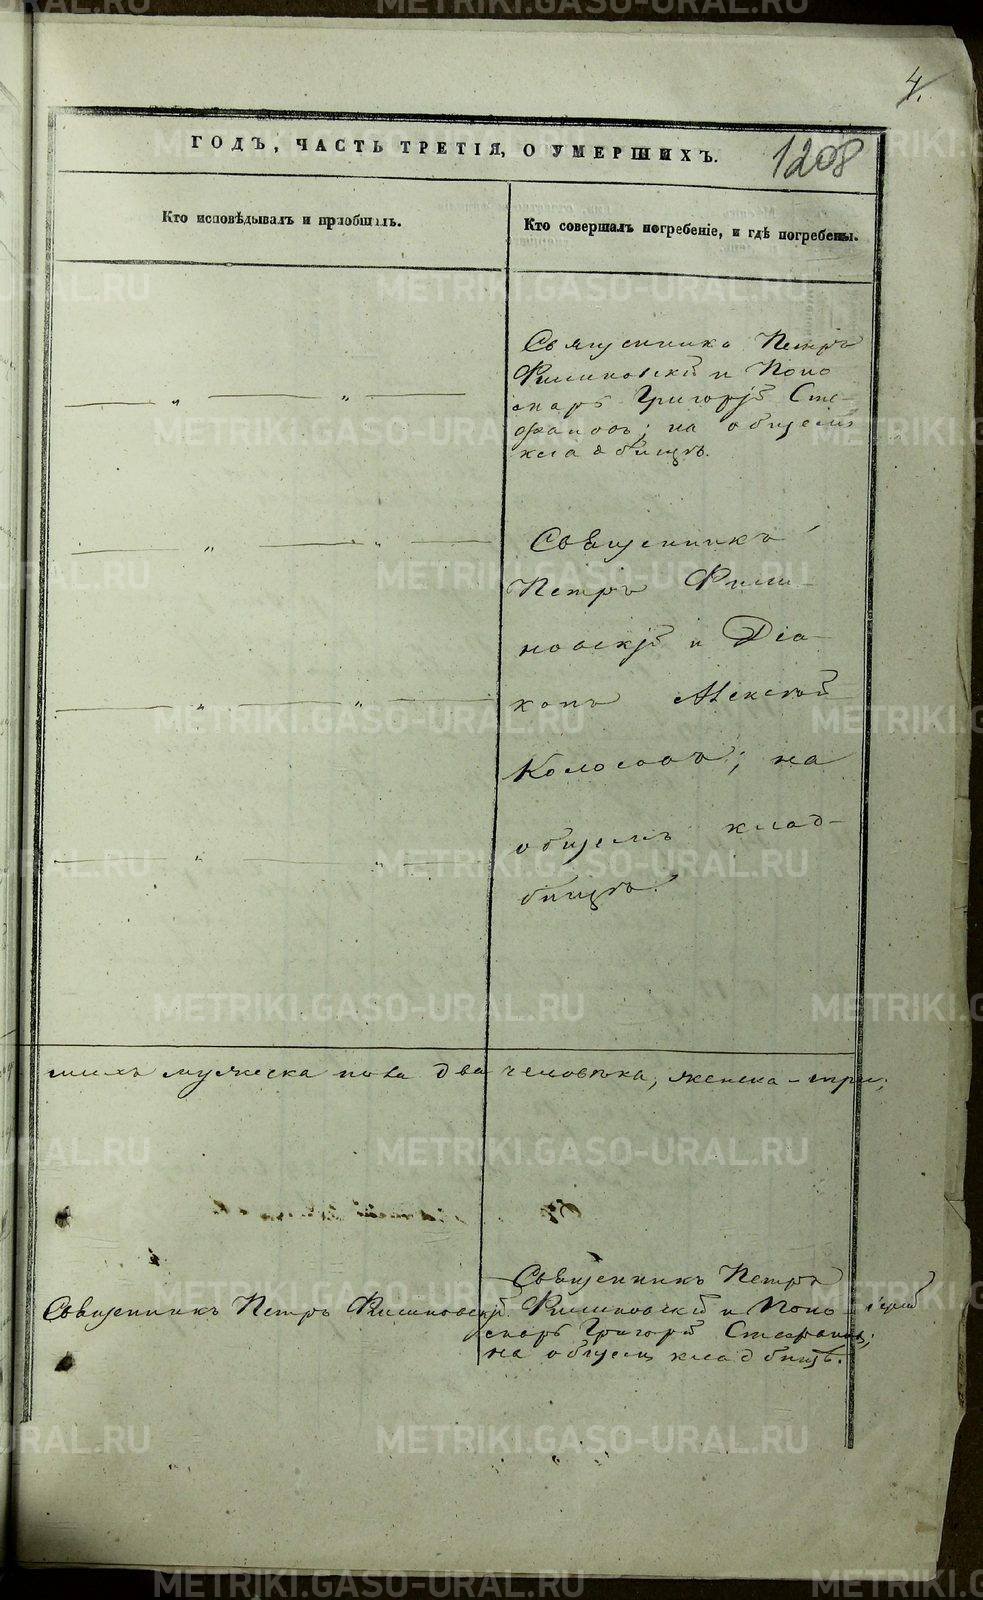 4.
ГОДЪ, ЧАСТЬ ТРЕТІЯ, О УМЕРШИХЪ.
1208
Кто исповѣдывалъ и пріобщалъ.
Кто совершалъ погребеніе, и гдѣ погребены.
Священникъ Петръ
и Поно
марь Григорій Сте-
фановъ; на общемъ
кладбищѣ.
Священникъ
Петръ Фили-
новскій и Діа-
конъ Алексѣй
Колосовъ; на
общемъ клад-
бищѣ.
шихъ мужеска пола два человѣка, женска - три;
Священникъ Петръ Филиновскій
Священникъ Петръ
Филиновскій и Поно-
марь Григорій Стефановъ;
на общемъ кладбищѣ.
METRIKI.GASO-URAL.RU